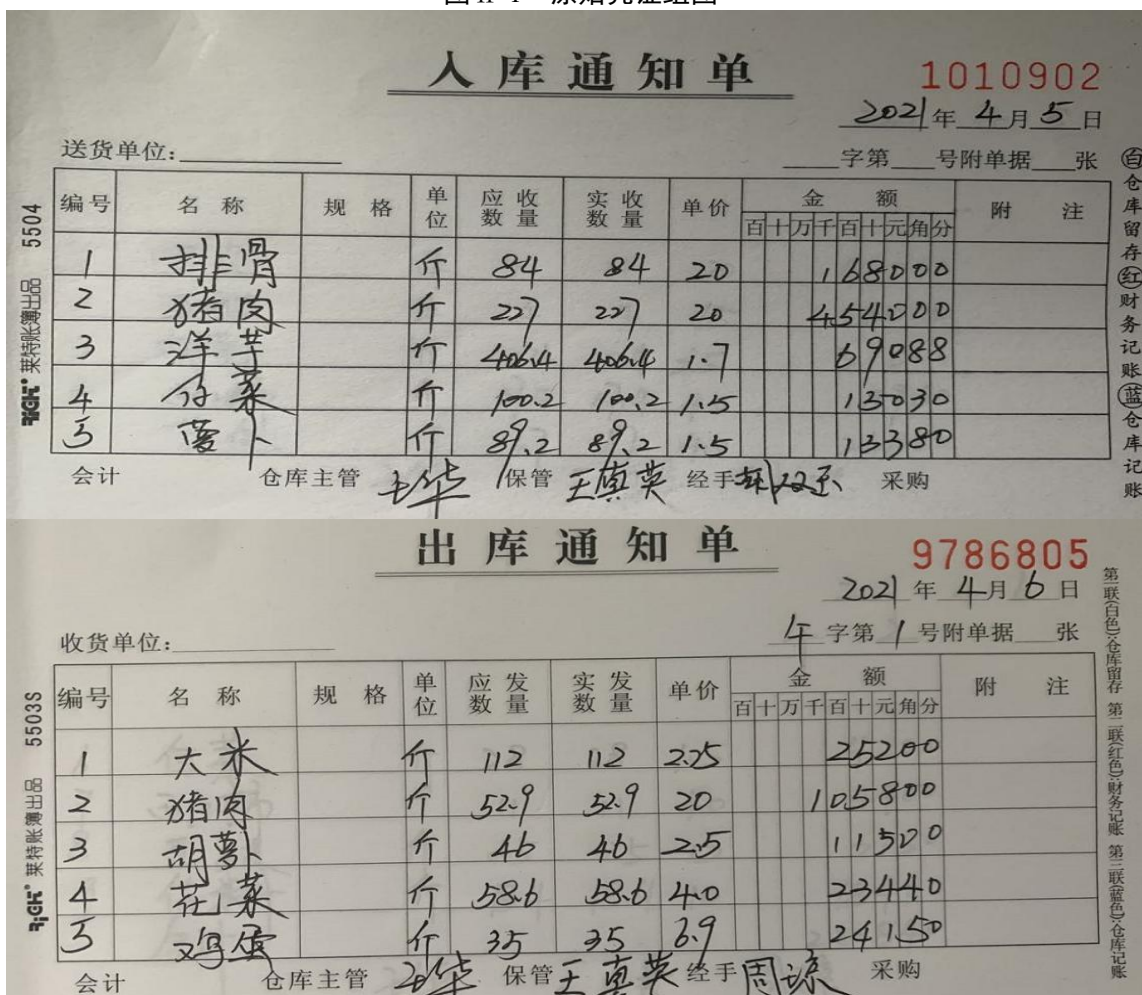 入库通知单
1010902
2021年4月5日
送货单位:
字第 号附单据 张
编号 名称 规格 单位 应收数量 实收数量 单价 金额 附注
百十万千百十元角分
1 排骨 斤 84 84 20 168000
2 猪肉 斤 227 227 20 454000
3 洋芋 斤 406.4 406.4 1.7 69088
4 仔菜 斤 100.2 100.2 1.5 15030
5 萝卜 斤 89.2 89.2 1.5 13380
会计 仓库主管 保管 王真英 经手 采购
5504
RiGHt 莱特账簿出品
白仓库留存 红财务记账 蓝仓库记账
出库通知单
9786805
2021年4月6日
收货单位:
午字第1号附单据 张
编号 名称 规格 单位 应发数量 实发数量 单价 金额 附注
百十万千百十元角分
1 大米 斤 112 112 2.25 25200
2 猪肉 斤 52.9 52.9 20 105800
3 胡萝卜 斤 46 46 2.5 11500
4 花菜 斤 58.6 58.6 4.0 23440
5 鸡蛋 斤 35 35 6.9 24150
会计 仓库主管 保管 王真英 经手 采购
5503S
RiGHt 莱特账簿出品
第一联(白色):仓库留存 第二联(红色):财务记账 第三联(蓝色):仓库记账